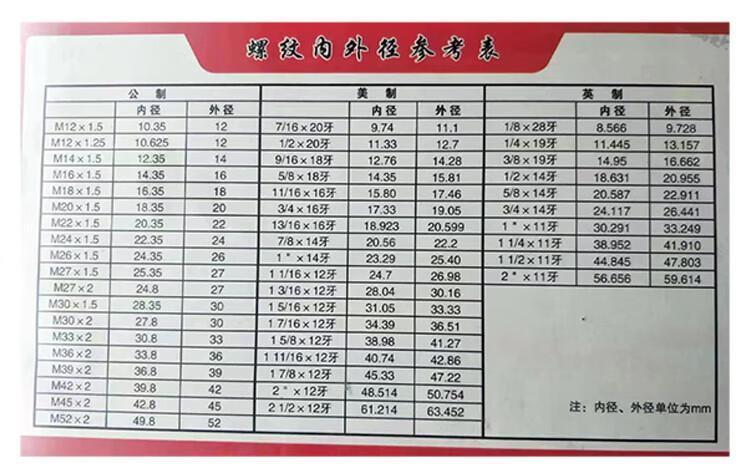 螺纹内外径参考表
公制 美制 英制
内径 外径 内径 外径 内径 外径
M12×1.5 10.35 12 7/16×20牙 9.74 11.1 1/8×28牙 8.566 9.728
M12×1.25 10.625 12 1/2×20牙 11.33 12.7 1/4×19牙 11.445 13.157
M14×1.5 12.35 14 9/16×18牙 12.76 14.28 3/8×19牙 14.95 16.662
M16×1.5 14.35 16 5/8×18牙 14.35 15.81 1/2×14牙 18.631 20.955
M18×1.5 16.35 18 11/16×16牙 15.80 17.46 5/8×14牙 20.587 22.911
M20×1.5 18.35 20 3/4×16牙 17.33 19.05 3/4×14牙 24.117 26.441
M22×1.5 20.35 22 13/16×16牙 18.923 20.599 1"×11牙 30.291 33.249
M24×1.5 22.35 24 7/8×14牙 20.56 22.2 1 1/4×11牙 38.952 41.910
M26×1.5 24.35 26 1"×14牙 23.29 25.40 1 1/2×11牙 44.845 47.803
M27×1.5 25.35 27 1 1/16×12牙 24.7 26.98 2"×11牙 56.656 59.614
M27×2 24.8 27 1 3/16×12牙 28.04 30.16
M30×1.5 28.35 30 1 5/16×12牙 31.05 33.33
M30×2 27.8 30 1 7/16×12牙 34.39 36.51
M33×2 30.8 33 1 5/8×12牙 38.98 41.27
M36×2 33.8 36 1 11/16×12牙 40.74 42.86
M39×2 36.8 39 1 7/8×12牙 45.33 47.22
M42×2 39.8 42 2"×12牙 48.514 50.754
M45×2 42.8 45 2 1/2×12牙 61.214 63.452
M52×2 49.8 52
注：内径、外径单位为mm